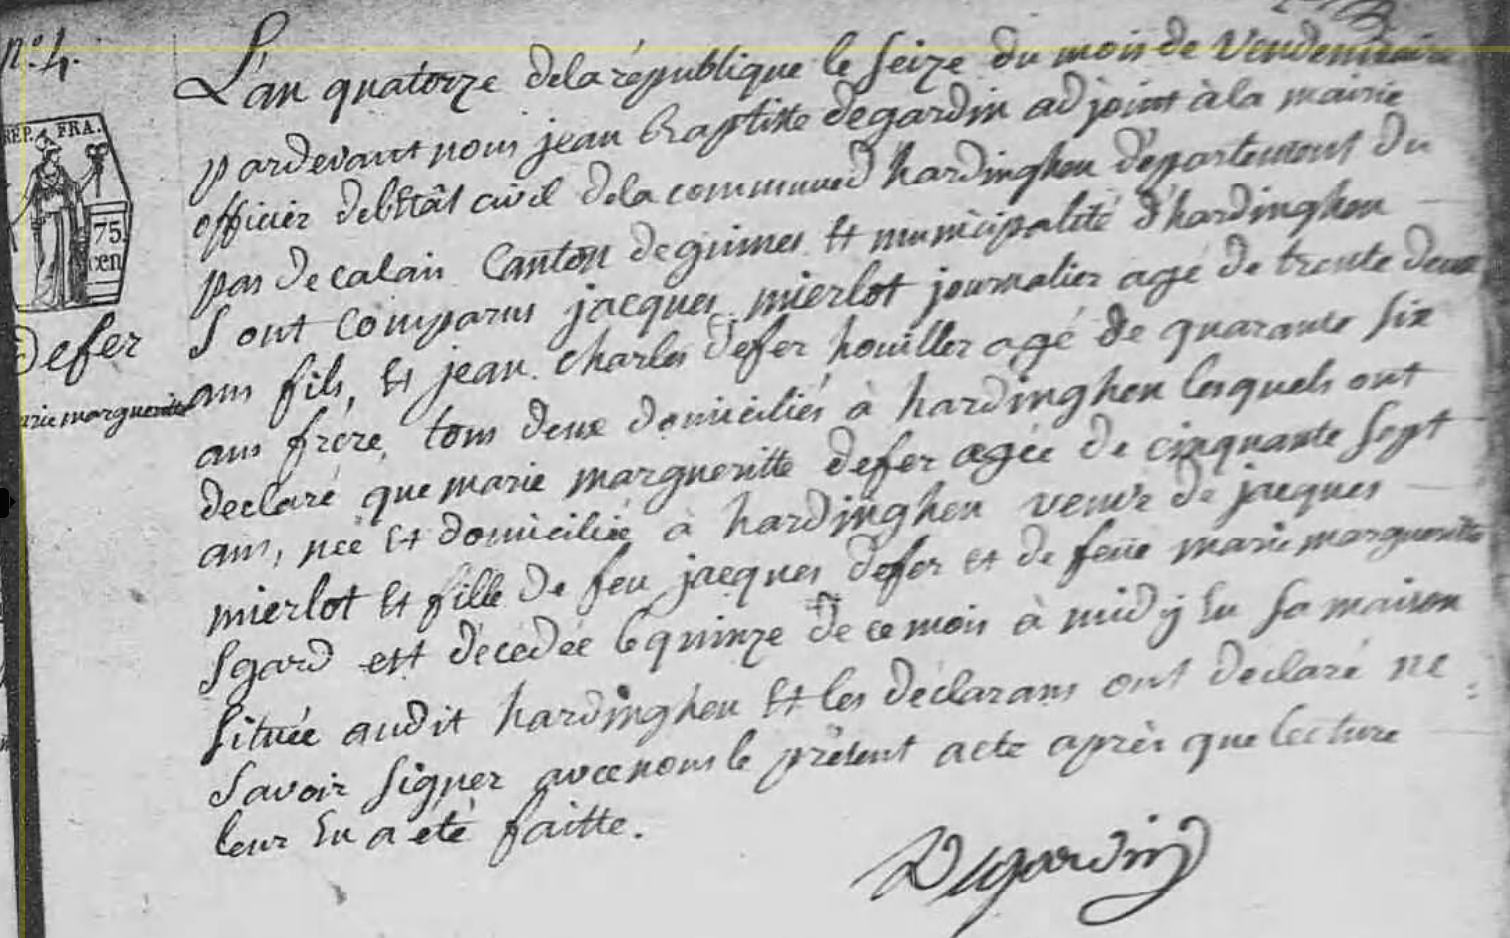 n.º 4.
REP. FRA.
75.
cen
Defer
marie marguerite
L'an quatorze de la république le seize du mois de Vendemiaire
pardevant nous jean Baptiste Degardin adjoint à la mairie
officier de l'Etât civil de la commune d hardinghen département du
pas de calais Canton de guines Et municipalité d'hardinghen
Sont comparus jacques mierlot journalier agé de trente deux
ans fils, Et jean charles Defer houiller agé de quarante six
ans frére, tous deux domiciliés à hardinghen lesquels ont
declaré que marie margueritte defer agée de cinquante sept
ans, née Et domiciliée à hardinghen veuve de jacques
mierlot Et fille de feu jacques defer et de feüe marie margueritte
Sgard est décédée le quinze de ce mois à midy En sa maison
située audit hardinghen Et les déclarans ont déclaré ne
savoir signer avec nous le présent acte après que lecture
leur En a eté faitte.
Degardin